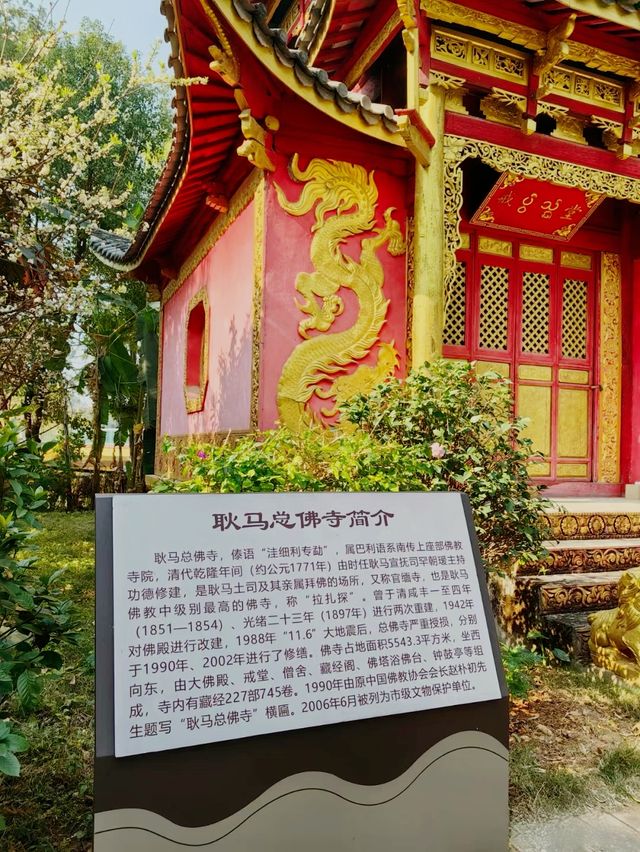 耿马总佛寺简介
耿马总佛寺，傣语“洼细利专勐”，属巴利语系南传上座部佛教
寺院，清代乾隆年间（约公元1771年）由时任耿马宣抚司罕朝瑷主持
功德修建，是耿马土司及其亲属拜佛的场所，又称官缅寺，也是耿马
佛教中级别最高的佛寺，称“拉扎探”。曾于清咸丰一至四年
（1851—1854）、光绪二十三年（1897年）进行两次重建，1942年
对佛殿进行改建，1988年“11.6”大地震后，总佛寺严重受损，分别
于1990年、2002年进行了修缮。佛寺占地面积5543.3平方米，坐西
向东，由大佛殿、戒堂、僧舍、藏经阁、佛塔浴佛台、钟鼓亭等组
成，寺内有藏经227部745卷。1990年由原中国佛教协会会长赵朴初先
生题写“耿马总佛寺”横匾。2006年6月被列为市级文物保护单位。